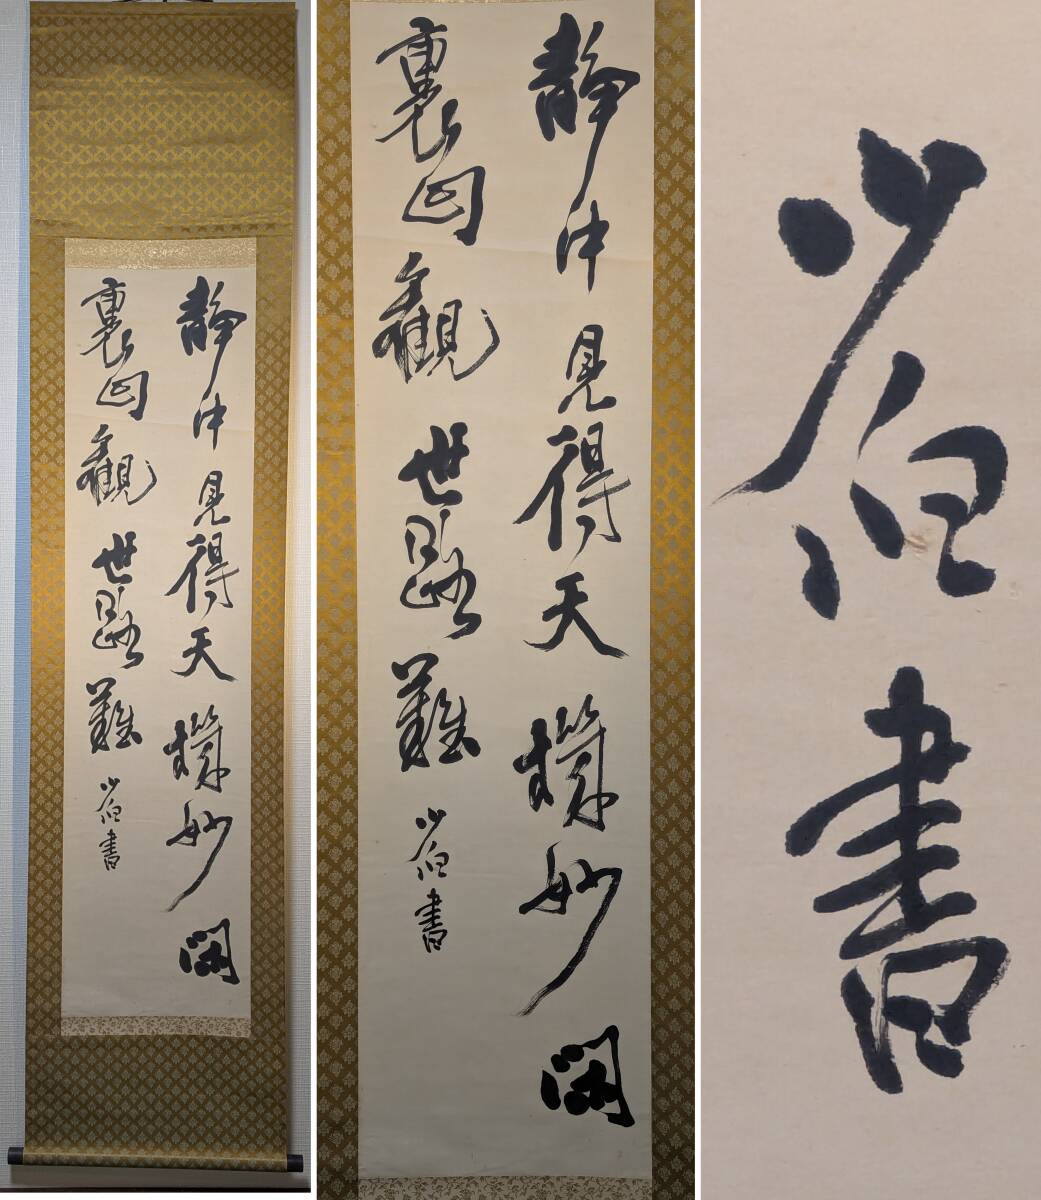 静中見得天機妙閑
裏回觀世路難
書
静中見得天機妙閑
裏回觀世路難
書
書